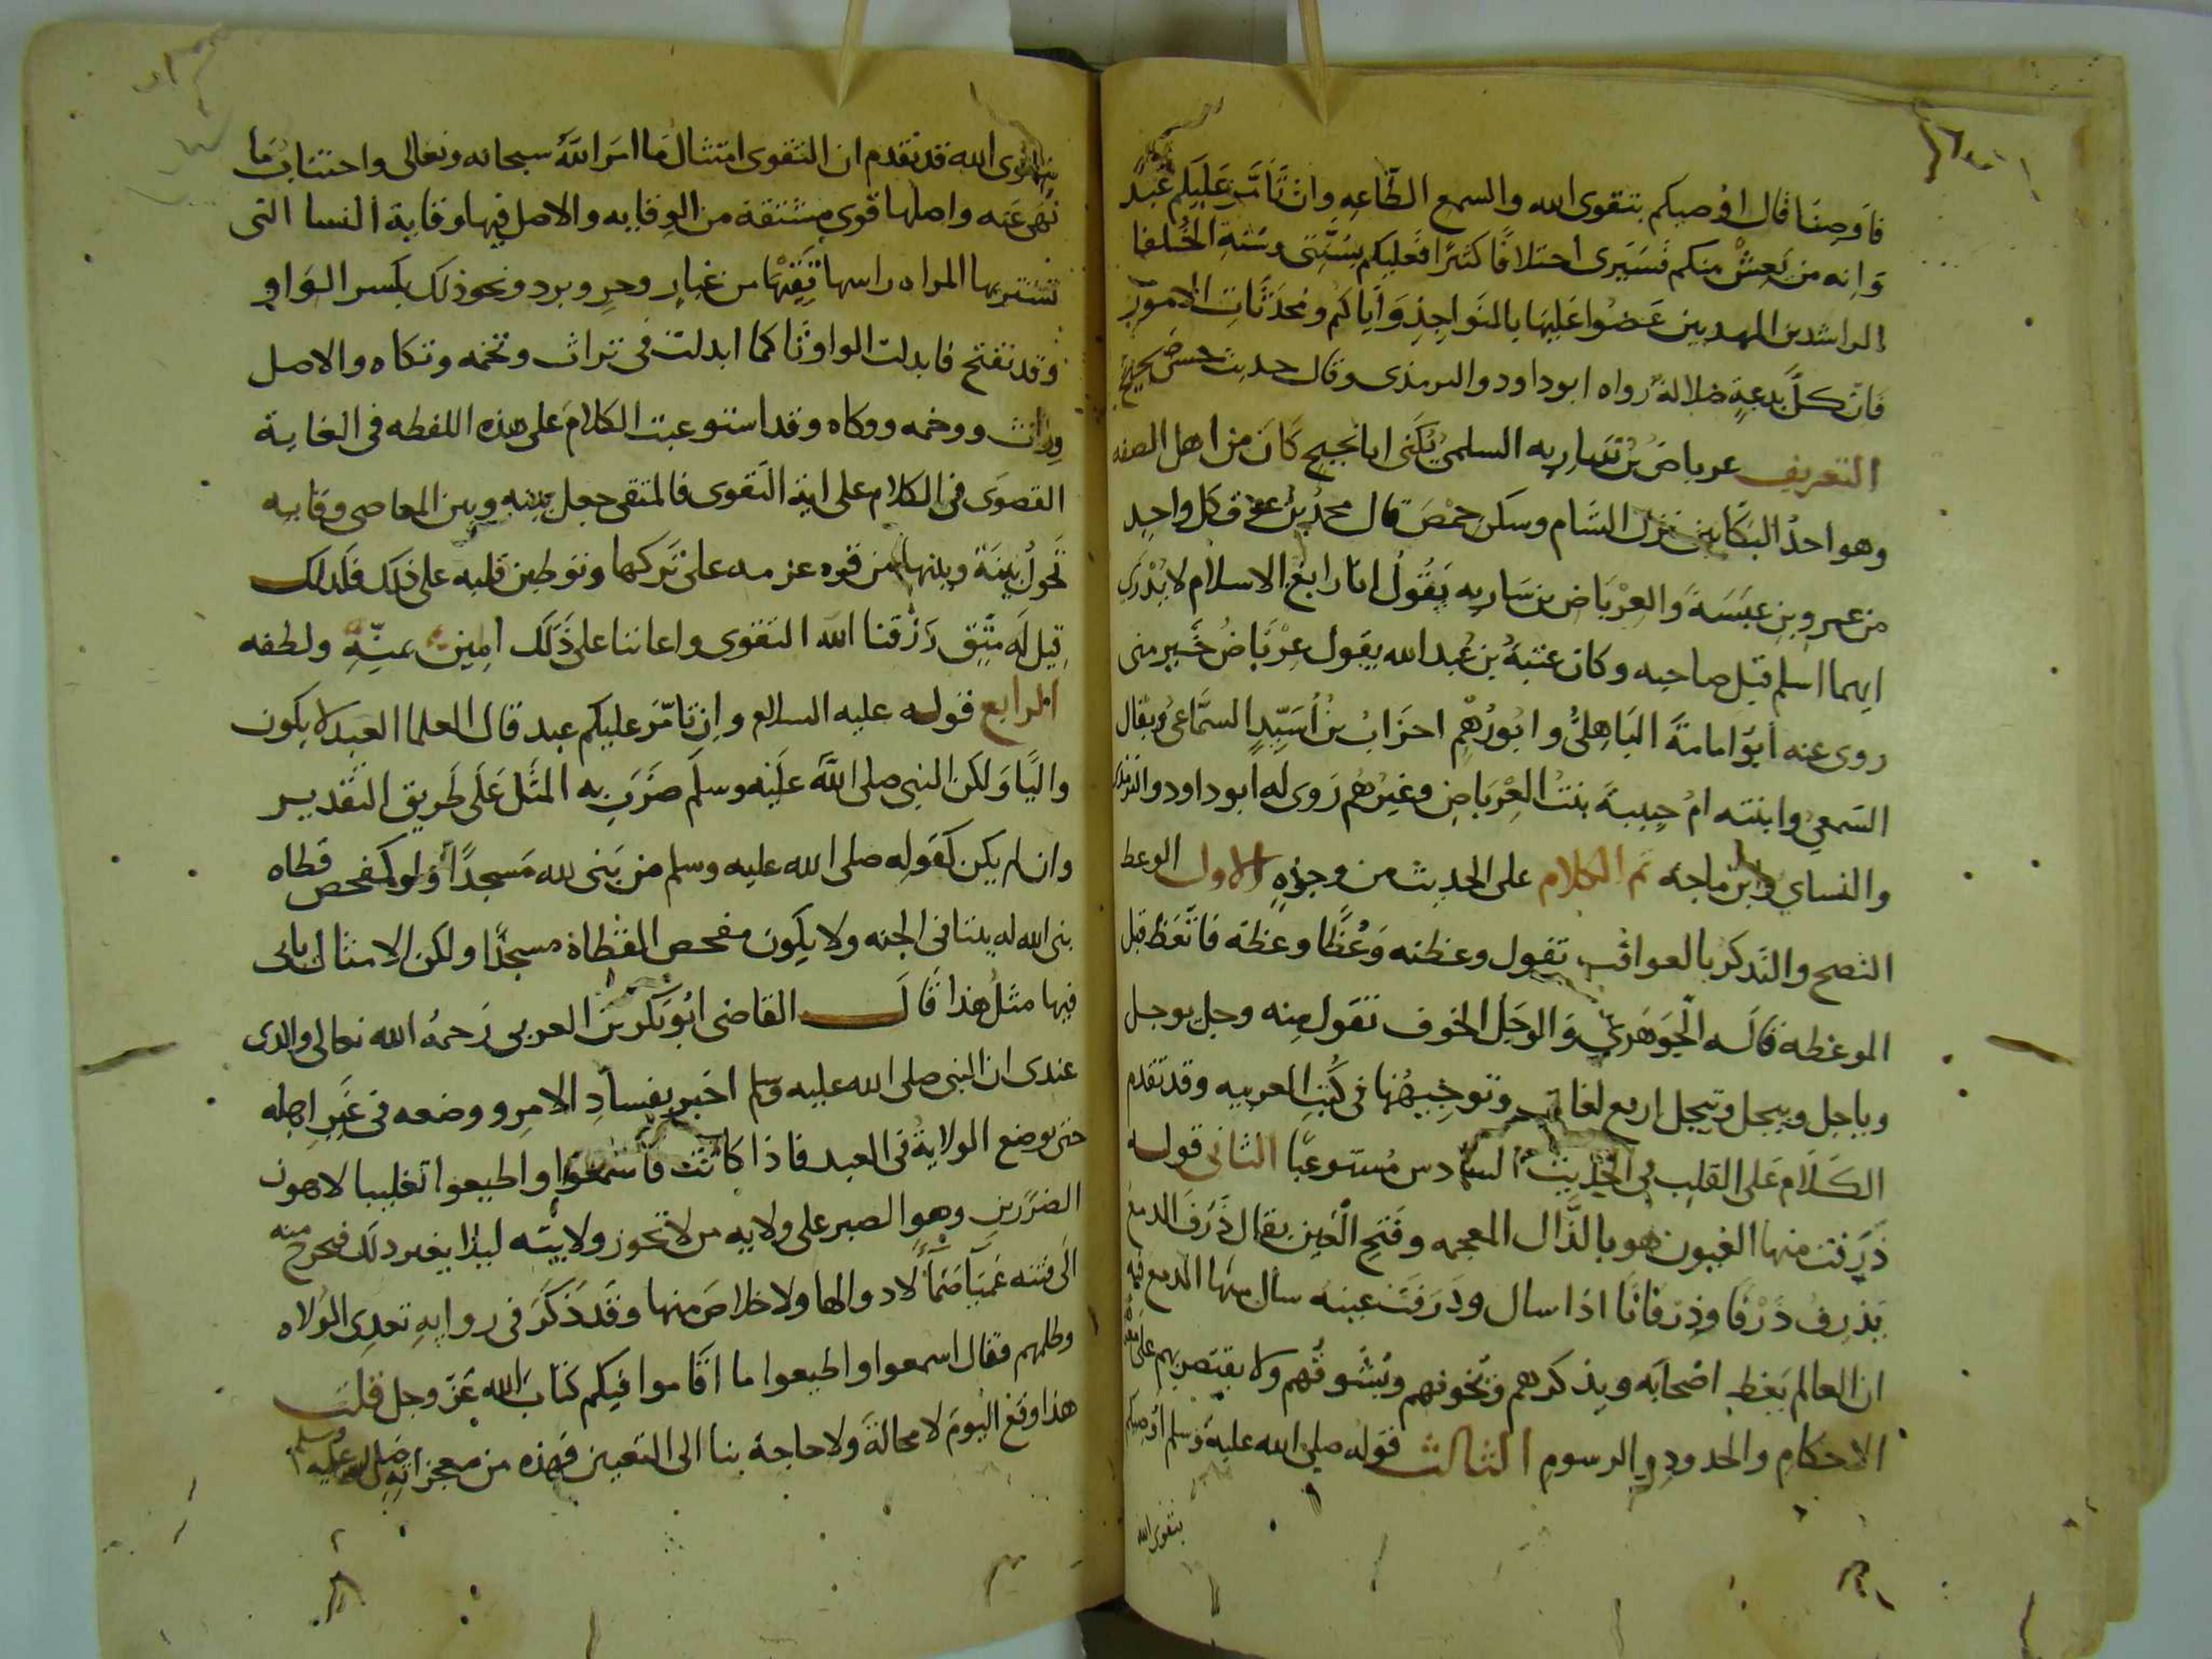 فاوصنا قال اوصيكم بتقوى الله والسمع الطاعه وان تامر عليكم عبد
وانه من يعش منكم فسيرى اختلافا كثيرا فعليكم بسنتي وسنة الخلفا
الراشدين المهديين عضوا عليها بالنواجذ واياكم ومحدثات الامور
فان كل بدعة ضلالة رواه ابو داود والترمذي وقال حديث حسن صحيح
التعريف عرباض بن ساريه السلمي يكنى ابا نجيح كان من اهل الصفه
وهو احد البكايين نزل الشام وسكن حمص قال محمد بن عوف كل واحد
من عمرو بن عبسة والعرباض بن ساريه يقول انا رابع الاسلام لا يدرى
ايهما اسلم قبل صاحبه وكان عتبة بن عبد الله يقول عرباض خير مني
روى عنه ابو امامة الباهلي وابو رهم احزاب بن اسيد السماعي ويقال
السمعي وابنته ام حبيبة بنت العرباض وغيرهم روى له ابو داود والترمذي
والنساي وابن ماجة ثم الكلام على الحديث من وجوه الاول الوعظ
النصح والتذكر بالعواقب تقول وعظته وعظا وعظة فاتعظ قبل
الموعظة قاله الجوهري والوجل الخوف تقول منه وجل يوجل
وياجل وييجل وييجل اربع لغات وتوجيهها في كتب العربيه وقد تقدم
الكلام على القلب في الحديث السادس مستوعبا الثاني قوله
ذرفت منها العيون هو بالذال المعجمه وفتح العين يقال ذرف الدمع
يذرف ذرفا وذرفانا اذا سال وذرفت عينه سال منها الدمع فيه
ان العالم يعظ اصحابه ويذكرهم ويخوفهم ويشوقهم ولا يقتصر بهم على
الاحكام والحدود والرسوم الثالث قوله صلى الله عليه وسلم اوصيكم
بتقوى الله
بتقوى الله قد تقدم ان التقوى امتثال ما امر الله سبحانه وتعالى واجتناب ما
نهى عنه واصلها قوى مشتقة من الوقايه والاصل فيها وقاية النسا التي
تستتر بها المراه راسها تقيها من غبار وحر وبرد ونحو ذلك بكسر الواو
وقد تفتح فابدلت الواو تا كما ابدلت في تراث وتخمه وتكاه والاصل
وراث ووخمه ووكاه وقد استوعبت الكلام على هذه اللفظه في الغاية
القصوى في الكلام على اية التقوى فالمتقي جعل بينه وبين المعاصي وقايه
تحول بينه وبينها من قوه عزمه على تركها وتوطين قلبه على ذلك فلذلك
قيل له متق رزقنا الله التقوى واعاننا على ذلك امين بمنه ولطفه
الرابع قوله عليه السلام وان تامر عليكم عبد قال العلما العبد لا يكون
واليا ولكن النبي صلى الله عليه وسلم ضرب به المثل على طريق التقدير
وان لم يكن كقوله صلى الله عليه وسلم من بنى لله مسجدا ولو كمفحص قطاه
بنى الله له بيتا في الجنه ولا يكون مفحص القطاة مسجدا ولكن الامثال ياتي
فيها مثل هذا قال القاضي ابو بكر بن العربي رحمه الله تعالى والذي
عندي ان النبي صلى الله عليه وسلم اخبر بفساد الامر ووضعه في غير اهله
حتى يوضع الولاية في العبد فاذا كانت فاسمعوا واطيعوا تغليبا لاهون
الضررين وهو الصبر على ولايه من لا تجوز ولايته ليلا يغير ذلك فيخرج منه
الى فتنه عميا صما لا دوا لها ولا خلاص منها وقد ذكر في روايه تعدي الولاه
وظلمهم فقال اسمعوا واطيعوا ما اقاموا فيكم كتاب الله عز وجل قلت
هذا وقع اليوم لا محالة ولا حاجة بنا الى التعيين فهذه من معجزاته صلى الله عليه وسلم